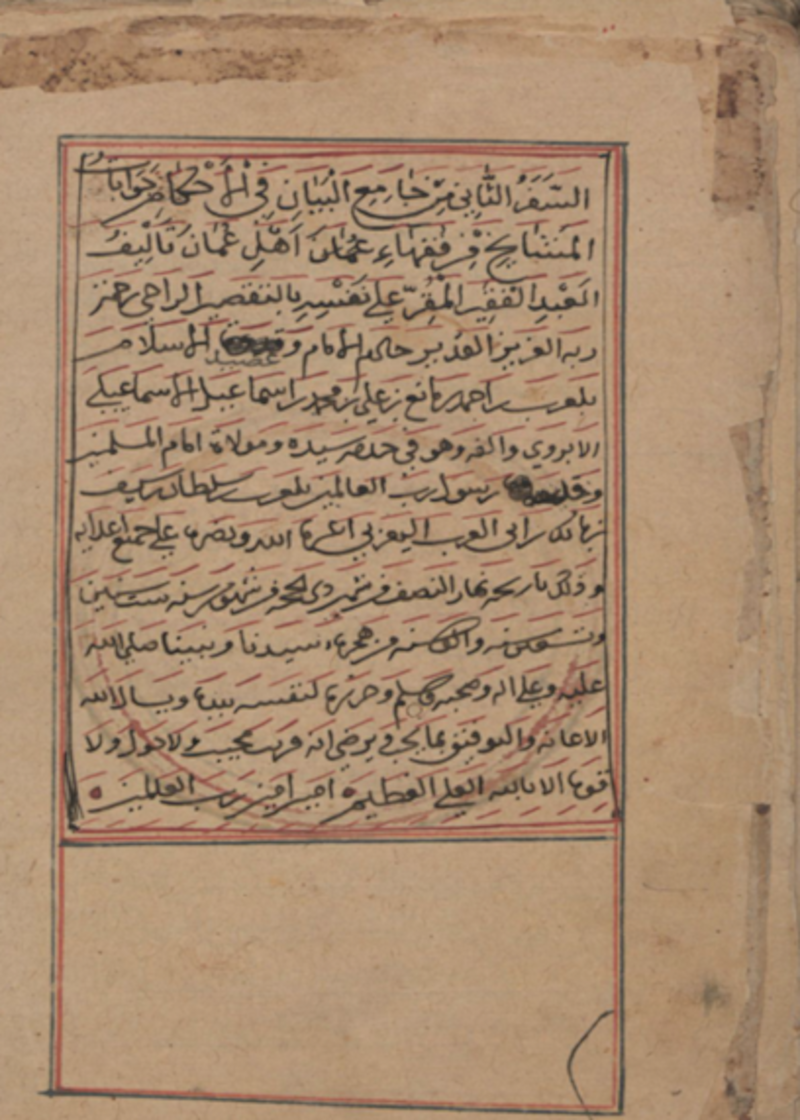 السَّفَرُ الثَّانِي مِنْ جَامِعِ الْبَيَانِ فِي الْأَحْكَامِ جَوَابَاتُ
المَشَايِخِ مِنْ فُقَهَاءِ عُمَانَ أَهْلِ عُمَانَ تَأْلِيفُ
العَبْدِ الفَقِيرِ المُقِرِّ عَلَى نَفْسِهِ بِالتَّقْصِيرِ الراجي رحمة
ربه العزيز القدير حاكم الإمام و عضيد الاسلام
بلعرب بن احمد بن مانع بن علي بن محمد بن اسماعيل الاسماعيلي
الابروي والفه وهو في خدمة سيده ومولاه امام المسلمين
رسول رب العالمين بلعرب بن سلطان بن سيف
بن مالك بن ابي العرب اليعربي اعزه الله ونصره على جميع اعدايه
وذلك تاريخه نهار النصف من شهر ذي الحجه من شهور سنه ست سنين
وتسعين سنه والف سنه من هجرة سيدنا ونبينا صلى الله
عليه وعلى اله وصحبه وسلم وحرره لنفسه بيده ويسال الله
الاعانه والتوفيق بما يحب ويرضى انه قريب مجيب ولا حول ولا
قوة الا بالله العلي العظيم امين امين رب العلمين